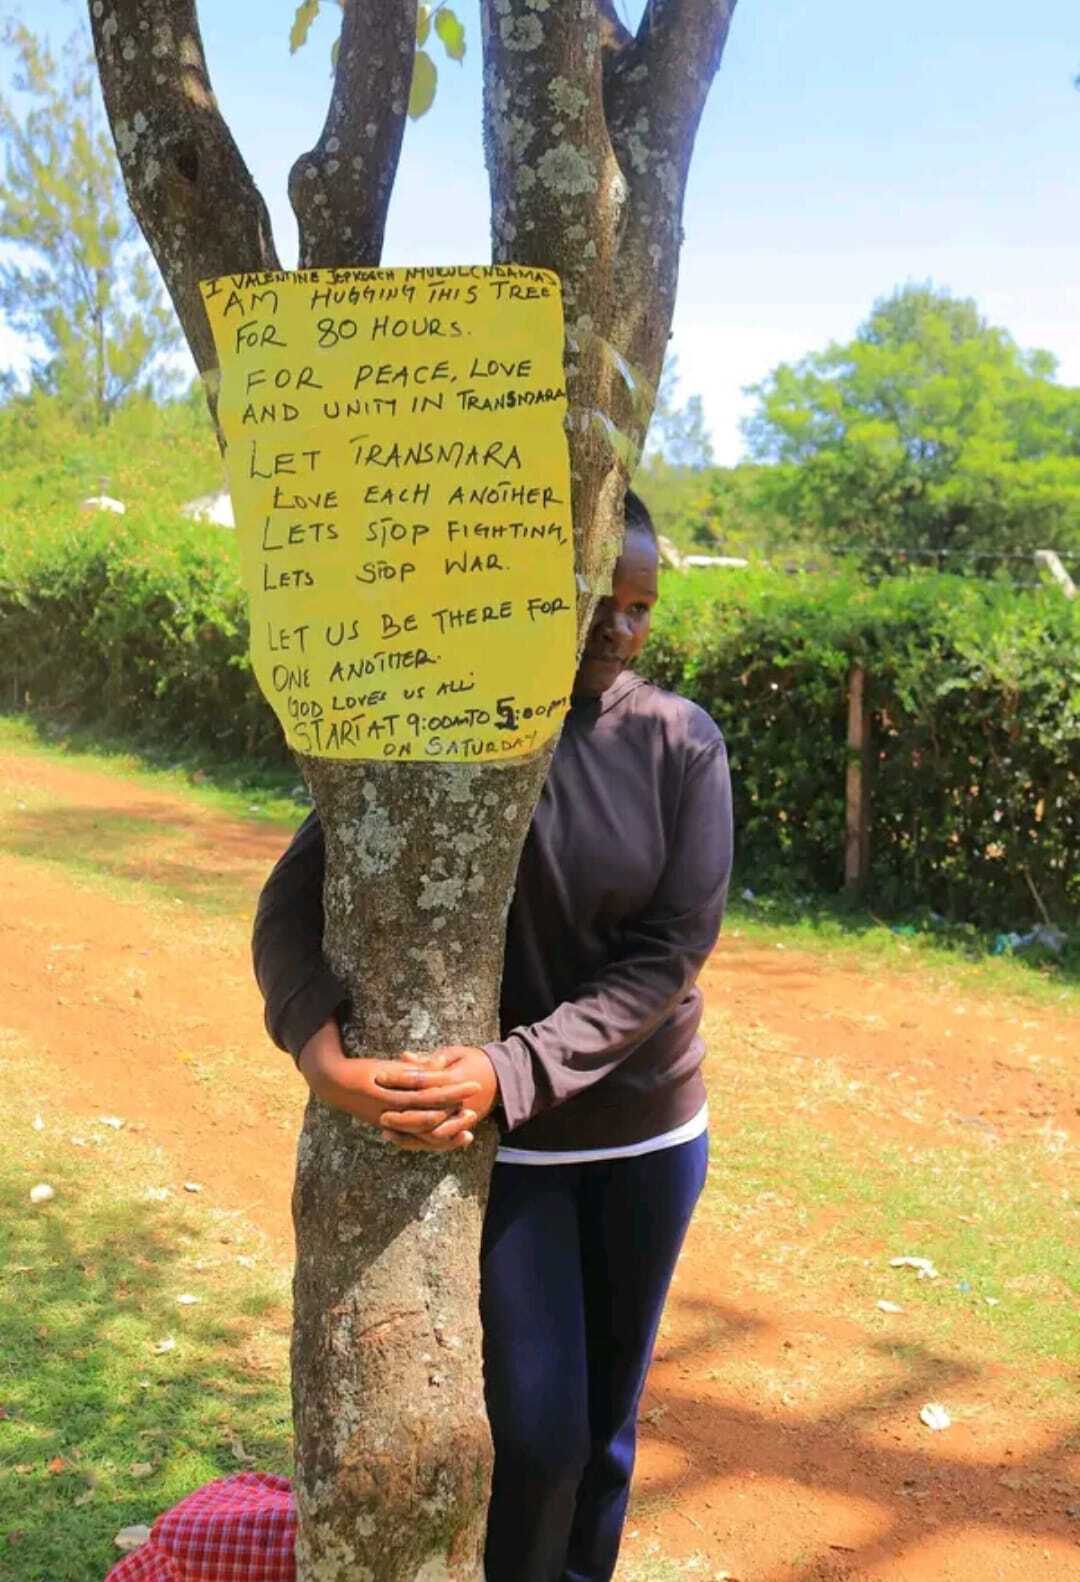 I VALENTINE JEPKOECH
AM HUGGING THIS TREE
FOR 80 HOURS.
FOR PEACE, LOVE
AND UNITY IN TRANSMARA
LET TRANSMARA
LOVE EACH ANOTHER
LETS STOP FIGHTING,
LETS STOP WAR.
LET US BE THERE FOR
ONE ANOTHER.
GOD LOVES US ALL
START AT 9:00AM TO 5:00PM
ON SATURDAY